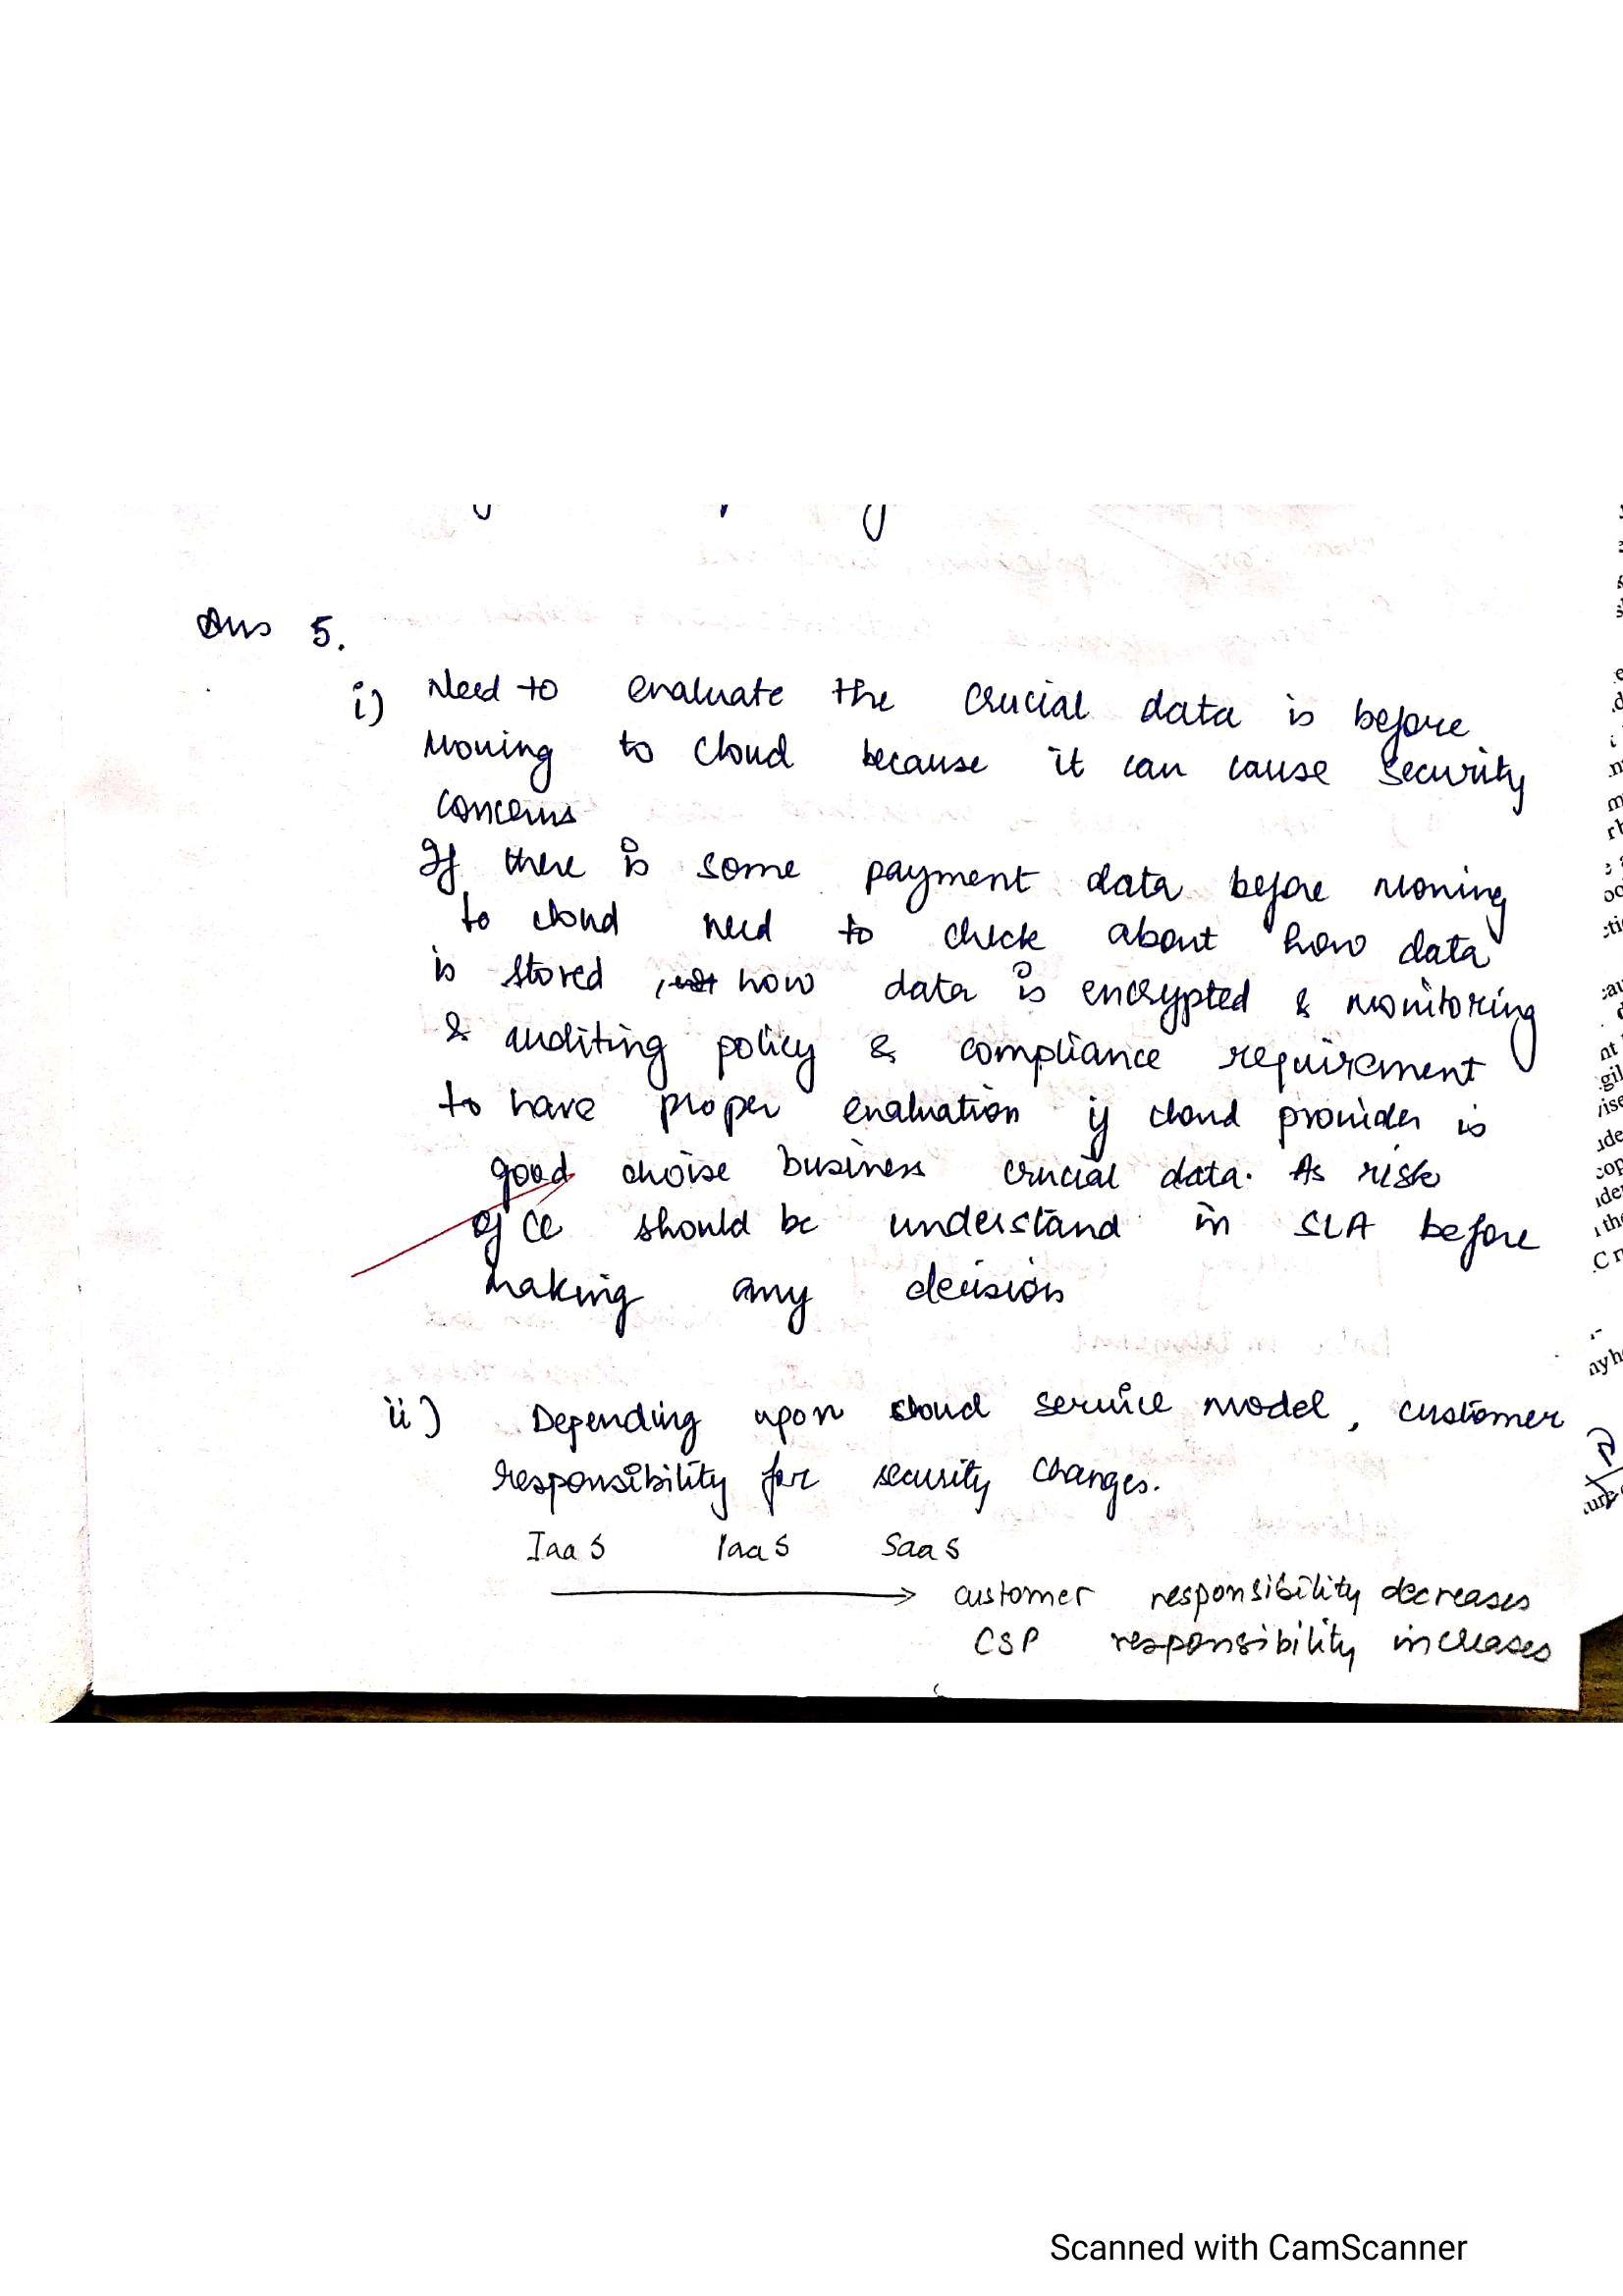 Ans 5.
i) Need to evaluate the crucial data is before
Moving to cloud because it can cause security
concerns
If there is some payment data before moving
to cloud need to check about how data
is stored , how data is encrypted & monitoring
& auditing policy & compliance requirement
to have proper evaluation if cloud provider is
good choise business crucial data. As risk
of CC should be understand in SLA before
making any decision
ii) Depending upon cloud service model, customer
responsibility for security changes.
IaaS PaaS SaaS
customer responsibility decreases
CSP responsibility increases
Scanned with CamScanner